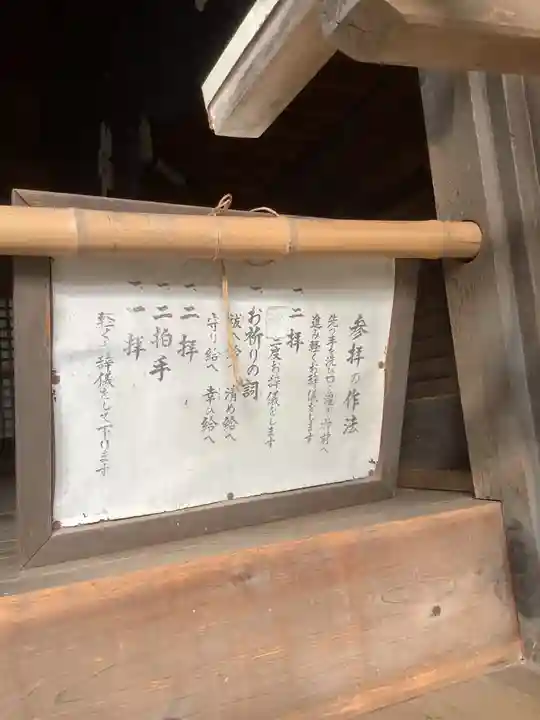 参拝の作法
先づ手を洗ひ口を灌ぎ神前へ
進み軽くお辞儀をします
一、二拝
二度お辞儀をします
一、お祈りの詞
祓へ給へ 清め給へ
守り給へ 幸ひ給へ
一、二拝
一、二拍手
一、一拝
軽くお辞儀をして下ります